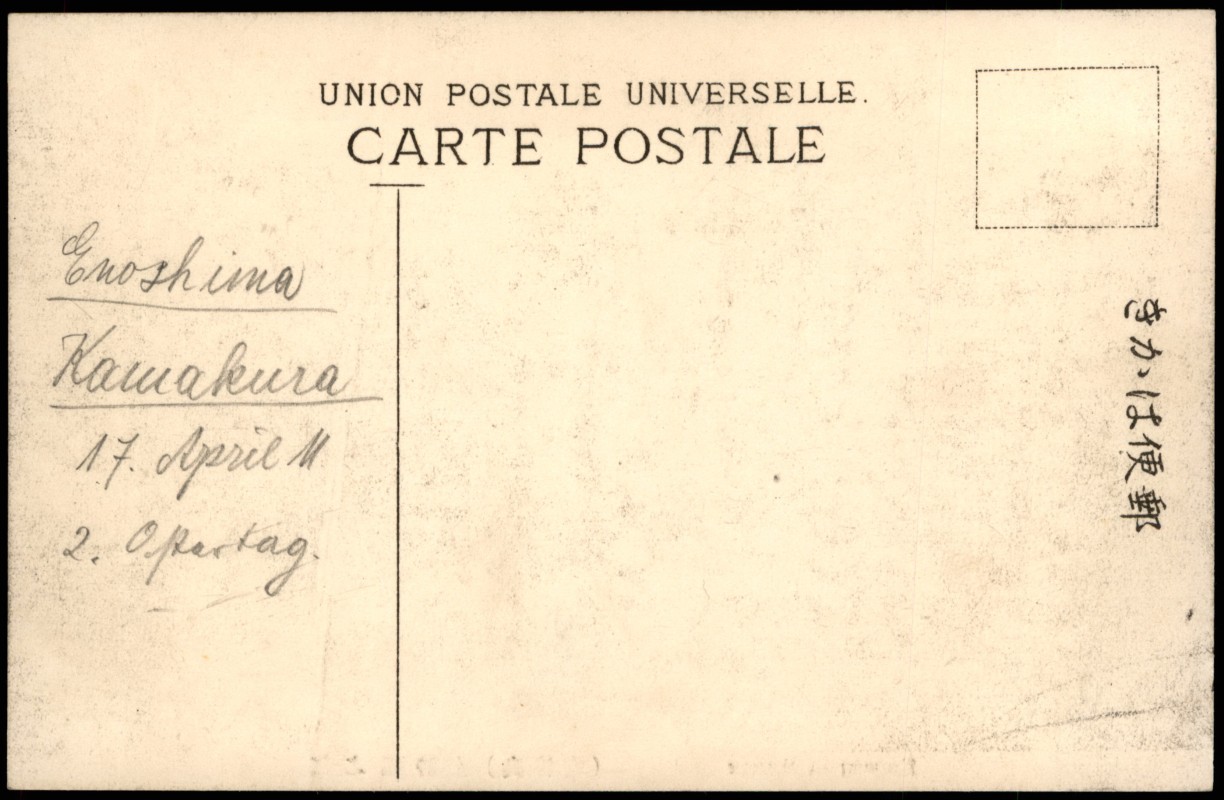 UNION POSTALE UNIVERSELLE.
CARTE POSTALE
Enoshima
Kamakura
17. April 11
2. Ostertag.
きかは便郵